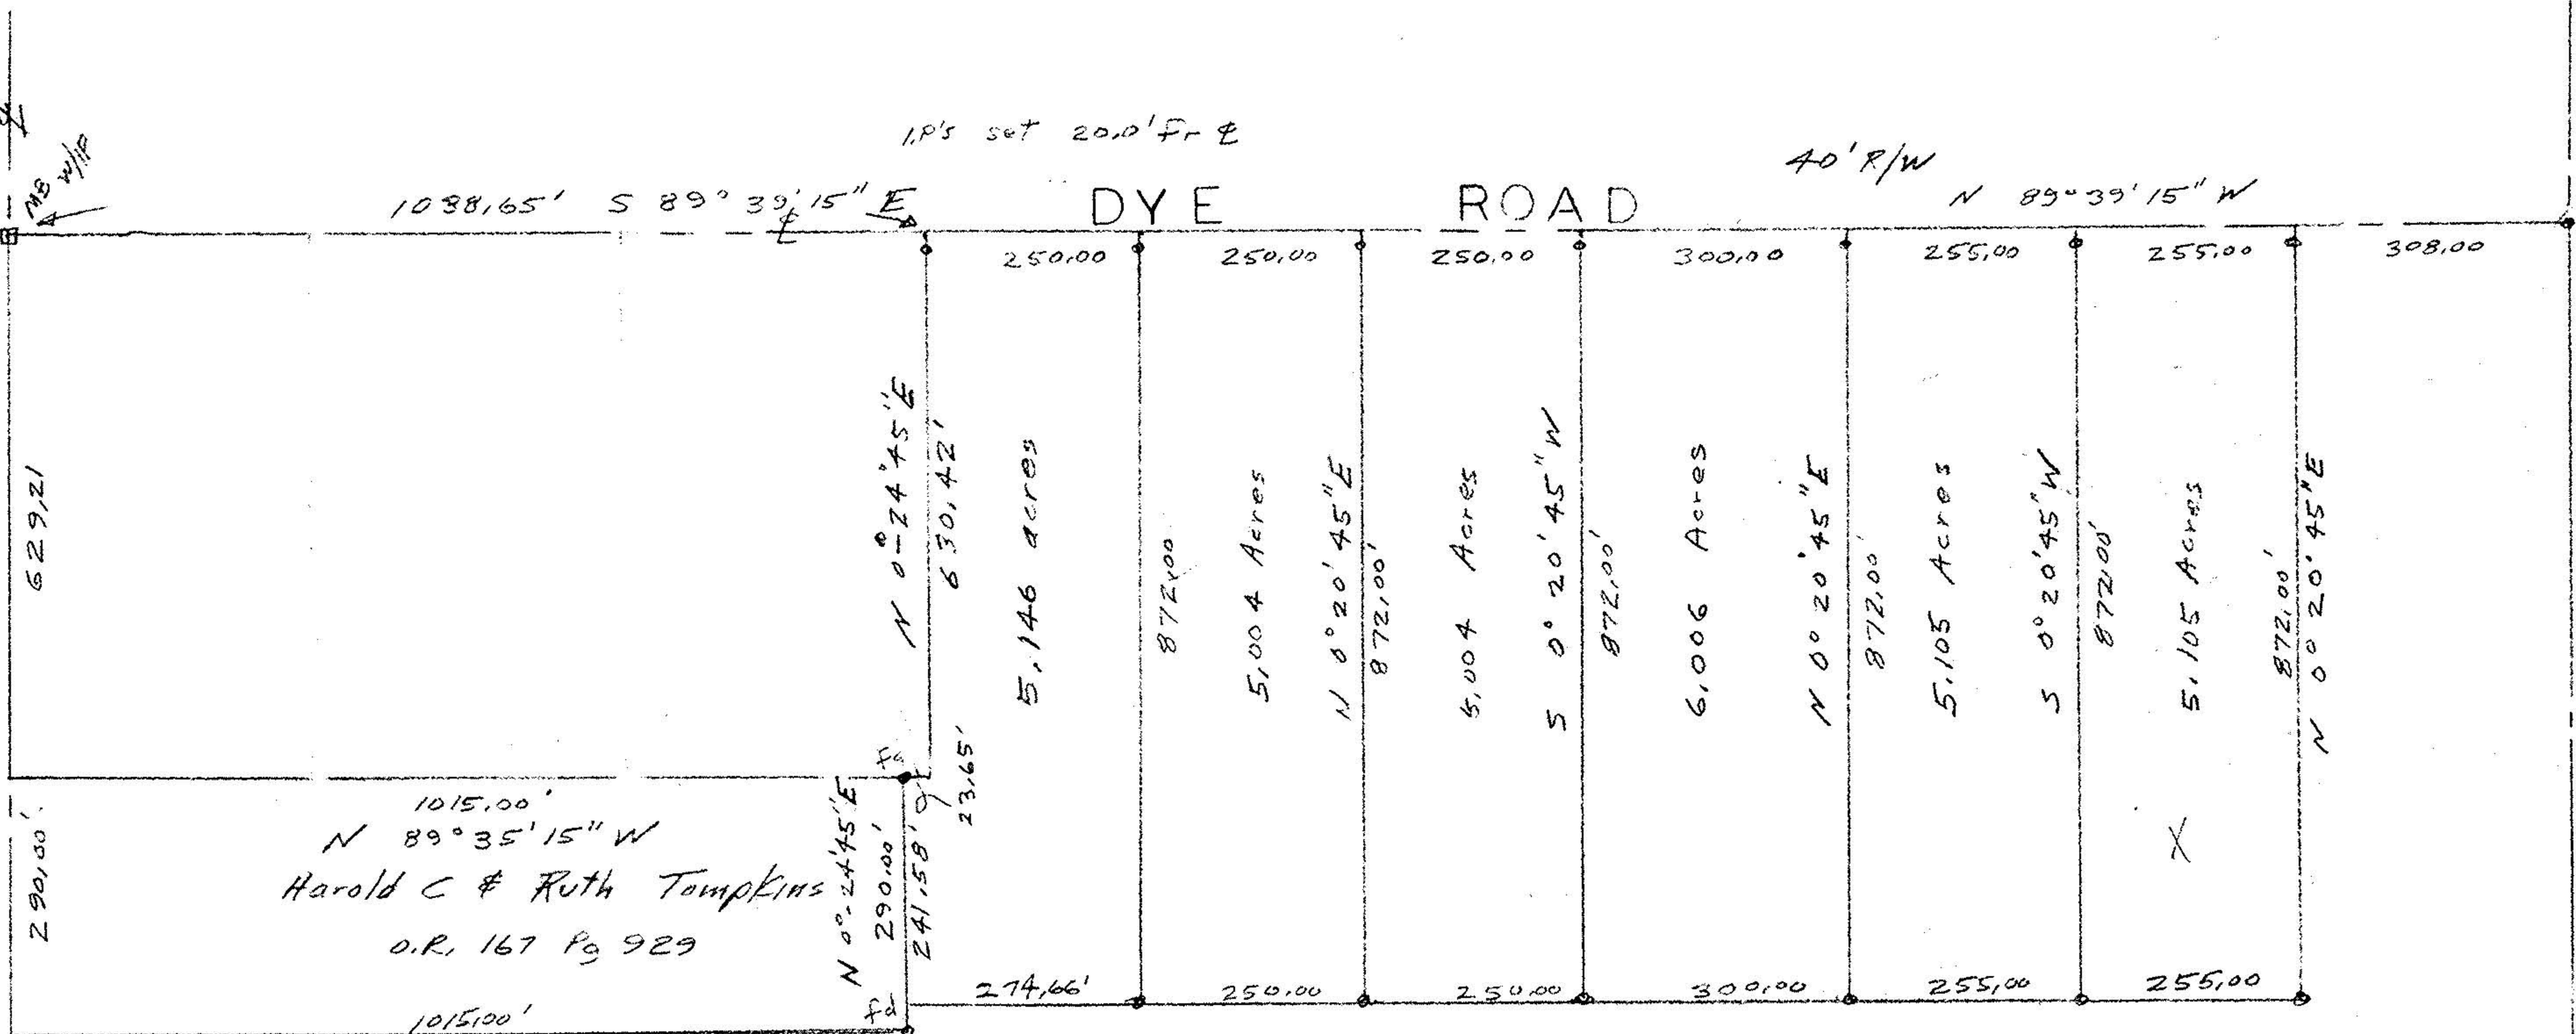 I.P.'s set 20.0' fr ℄
40' R/W
MB W/IP
1038.65' S 89° 39' 15" E
℄
DYE ROAD
N 89° 39' 15" W
250.00
250.00
250.00
300.00
255.00
255.00
308.00
629.21
N 0°-24'45" E
630.42'
5.146 acres
872.00
5.004 Acres
N 0° 20' 45" E
872.00'
5.004 Acres
S 0° 20' 45" W
872.00'
6.006 Acres
N 0° 20' 45" E
872.00'
5.105 Acres
S 0° 20' 45" W
872.00'
5.105 Acres
872.00'
N 0° 20' 45" E
fd
23.65'
1015.00'
N 89° 35' 15" W
Harold C & Ruth Tompkins
O.R. 167 Pg 929
290.00'
N 0°-24'45" E
290.00'
241.58'
X
fd
1015.00'
274.66'
250.00
250.00
300.00
255.00
255.00